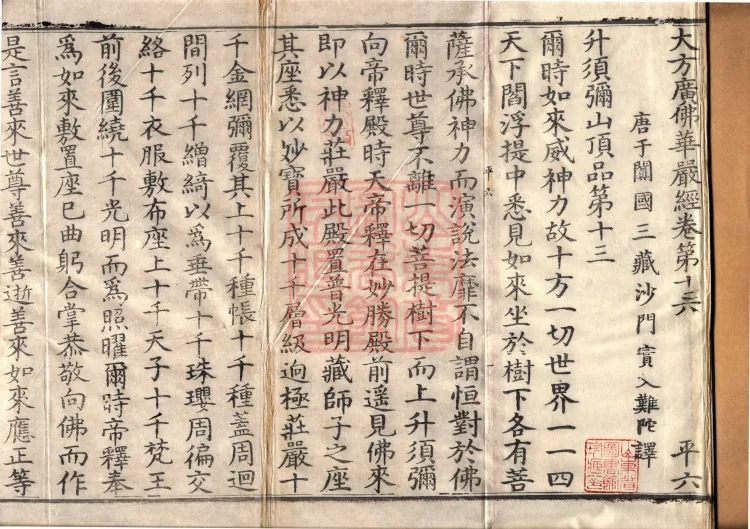 大方廣佛華嚴經卷第十六 平六
唐于闐國三藏沙門實叉難陀譯
升須彌山頂品第十三
爾時如來威神力故十方一切世界一一四
天下閻浮提中悉見如來坐於樹下各有菩
薩承佛神力而演說法靡不自謂恒對於佛
平六
爾時世尊不離一切菩提樹下而上升須彌
向帝釋殿時天帝釋在妙勝殿前遥見佛來
即以神力莊嚴此殿置普光明藏師子之座
其座悉以妙寶所成十千層級逈極莊嚴十
千金網彌覆其上十千種帳十千種蓋周迴
間列十千繒綺以爲垂帶十千珠瓔周徧交
絡十千衣服敷布座上十千天子十千梵王
前後圍繞十千光明而爲照曜爾時帝釋奉
爲如來敷置座已曲躬合掌恭敬向佛而作
是言善來世尊善來善逝善來如來應正等